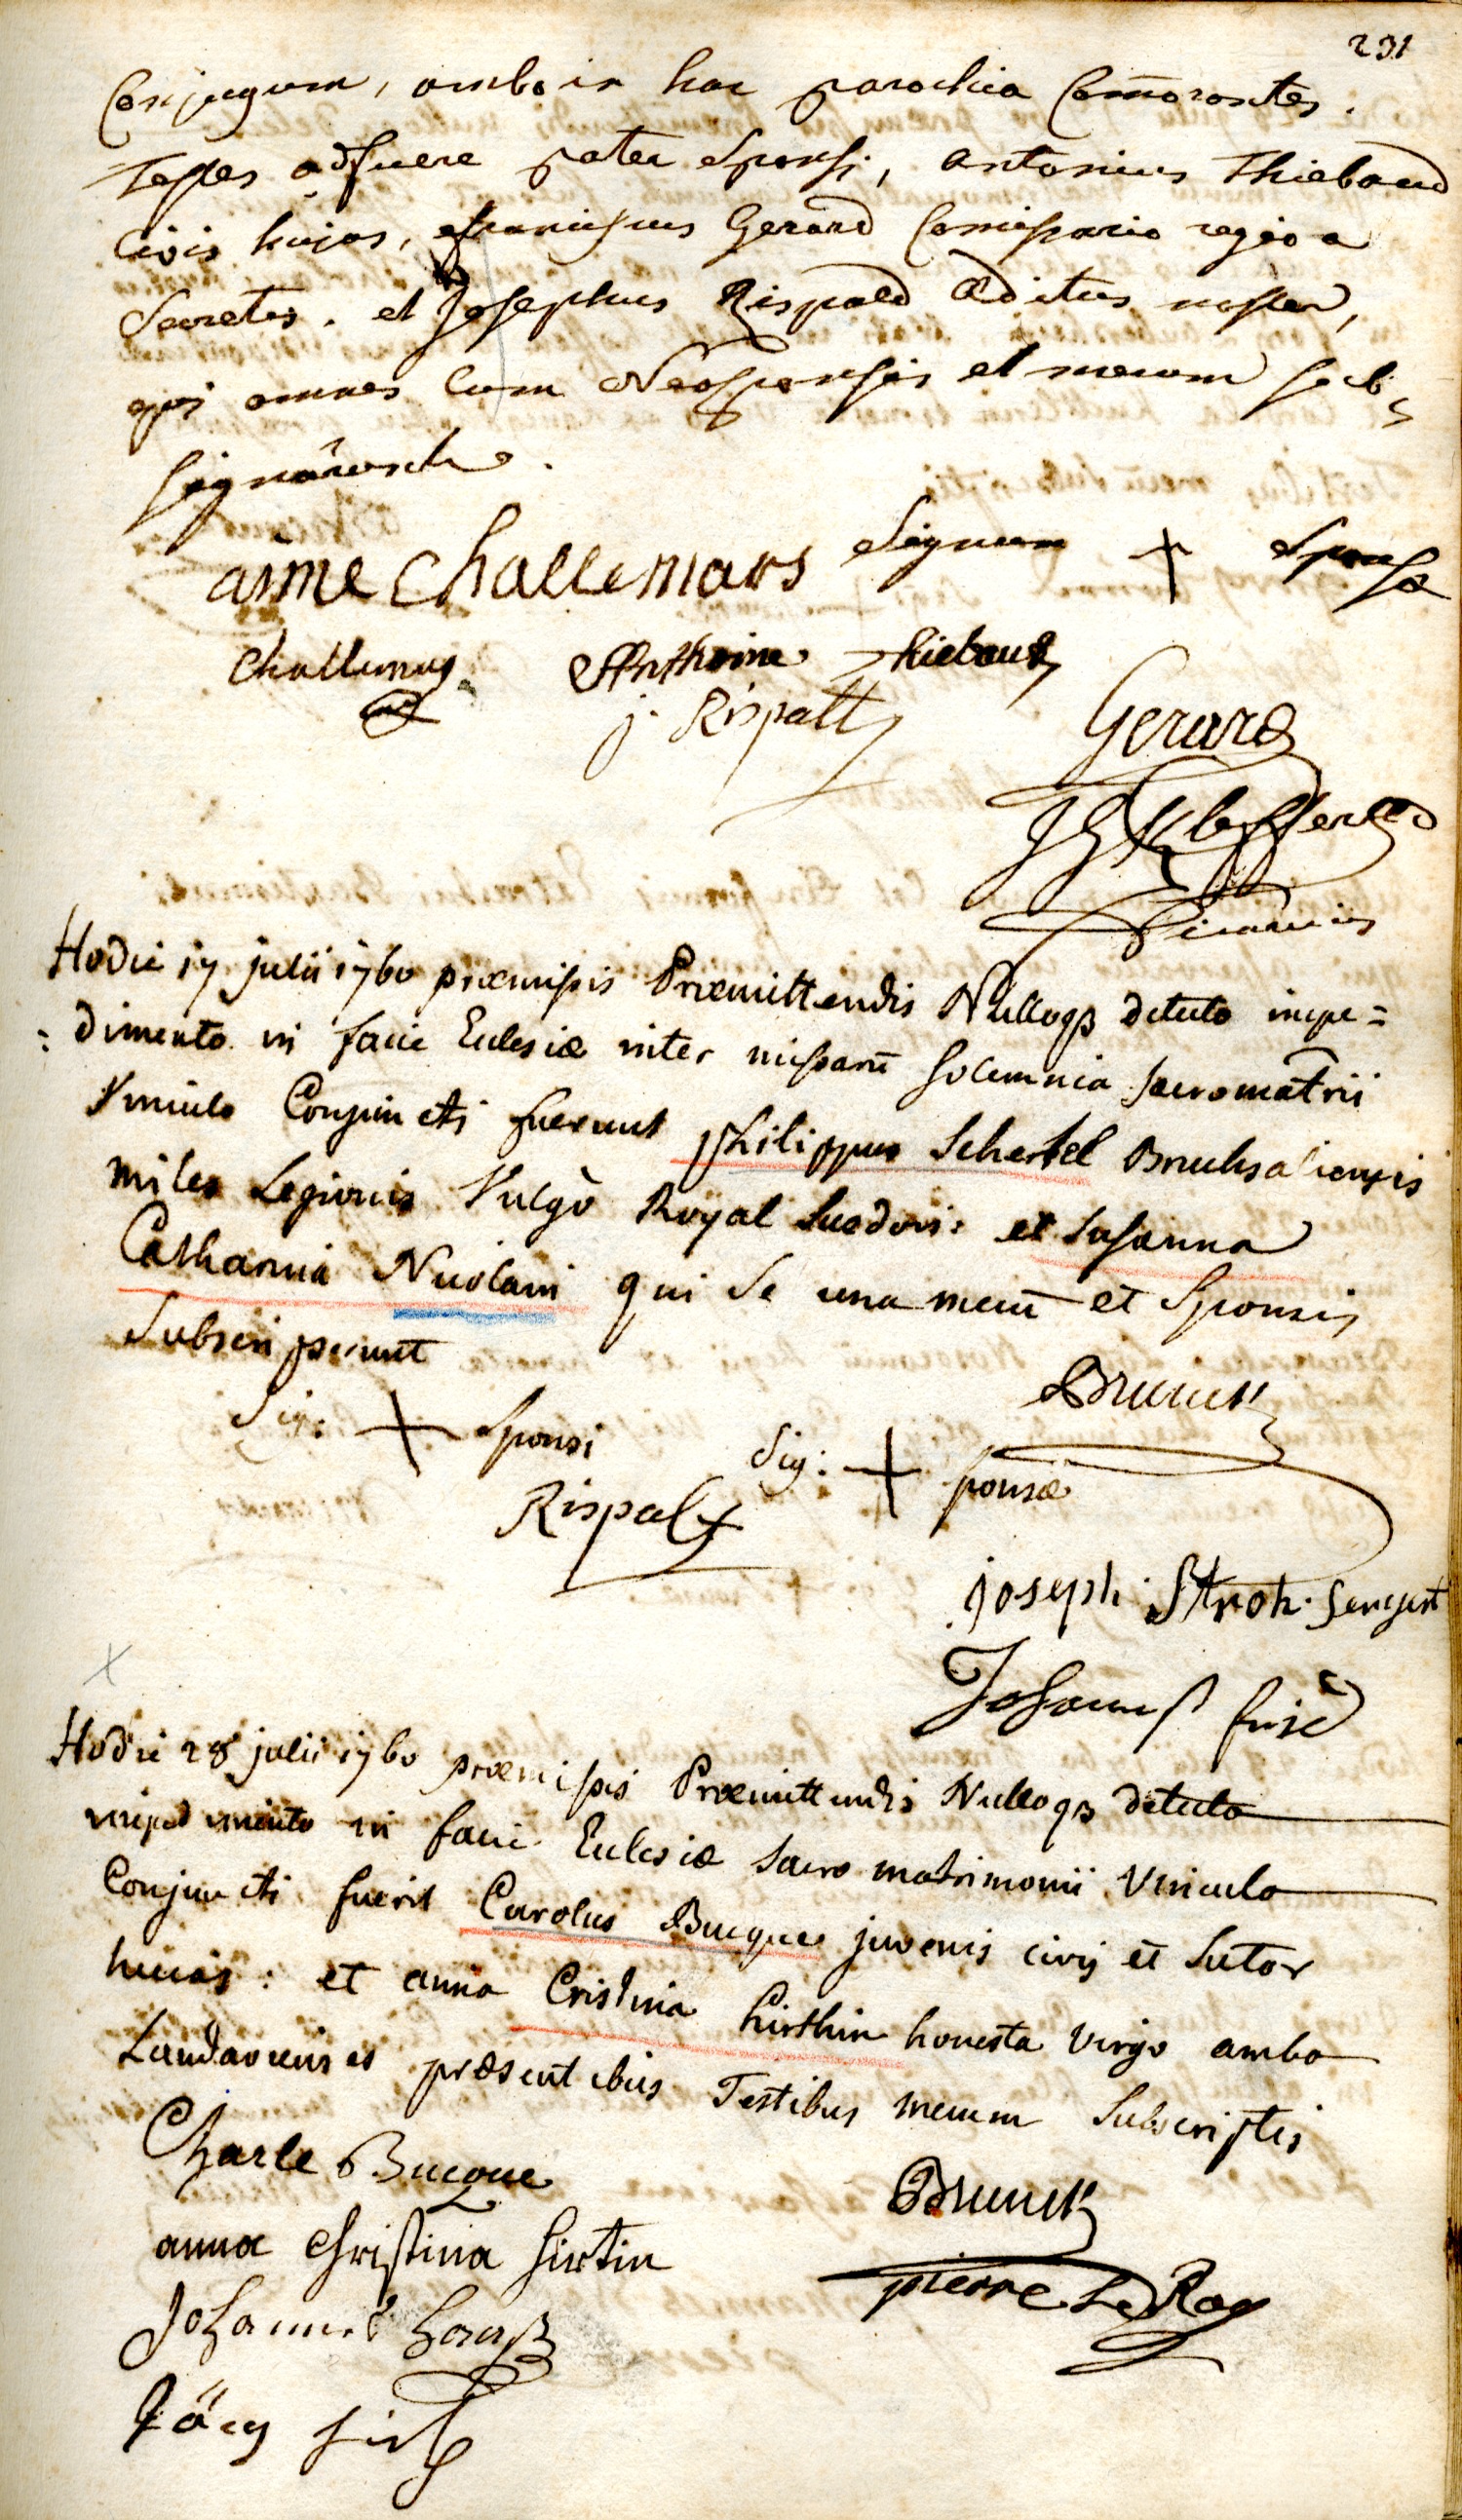 231
Conjugum, ambo in hac parochia Com̄orantes.
Testes adfuere pater Sponsi, antonius Thiebaud
Civis hujas, franciscus Gerard Comissario regio a
Secretis. et Josephus Rispald Ædituus noster,
qui omnes Cum Neosponsis et mecum sub
signārunt.
aime Challemars Signum + Sponsæ
Challemars Anthoine Thiebaud
j. Rispalt Gerard
Vicarius
Hodie 17 julii 1760 præmissis Præmittendis Nulloqȝ detecto impe=
=dimento in facie Eclesiæ inter missarū Solemnia Sacro matrii
Vinculo Conjuncti fuerunt philippus Schertel Bruchsaliensis
miles Legionis Vulgò Royal Suedois: et Susanna
Catharina Nicolain qui se una mecū et Sponsis
Subscripserunt
Sig: + Sponsi Brunck
Sig: + sponsæ
Rispalt
joseph Stroh Sergent
Johannes
Hodie 28 julii 1760 præmissis Præmittendis Nulloqȝ detecto
impedimento in facie Eclesiæ Sacro matrimonii Vinculo
Conjuncti fuerūt Carolus Bucque juvenis civis et Sutor
hujas: et anna Cristina hirthin honesta Virgo ambo
Landavienses præsentibus Testibus mecum Subscriptis
Charle Bucque Brunck
anna Christina hirtin pierre Le Roy
Johannes